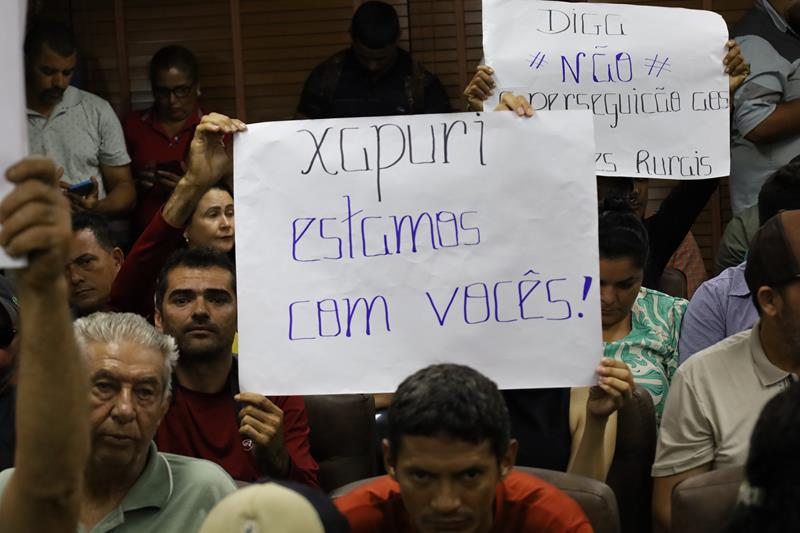 Xapuri
estamos
com vocês!
Diga
#NÃO#
a perseguição aos
Rurais